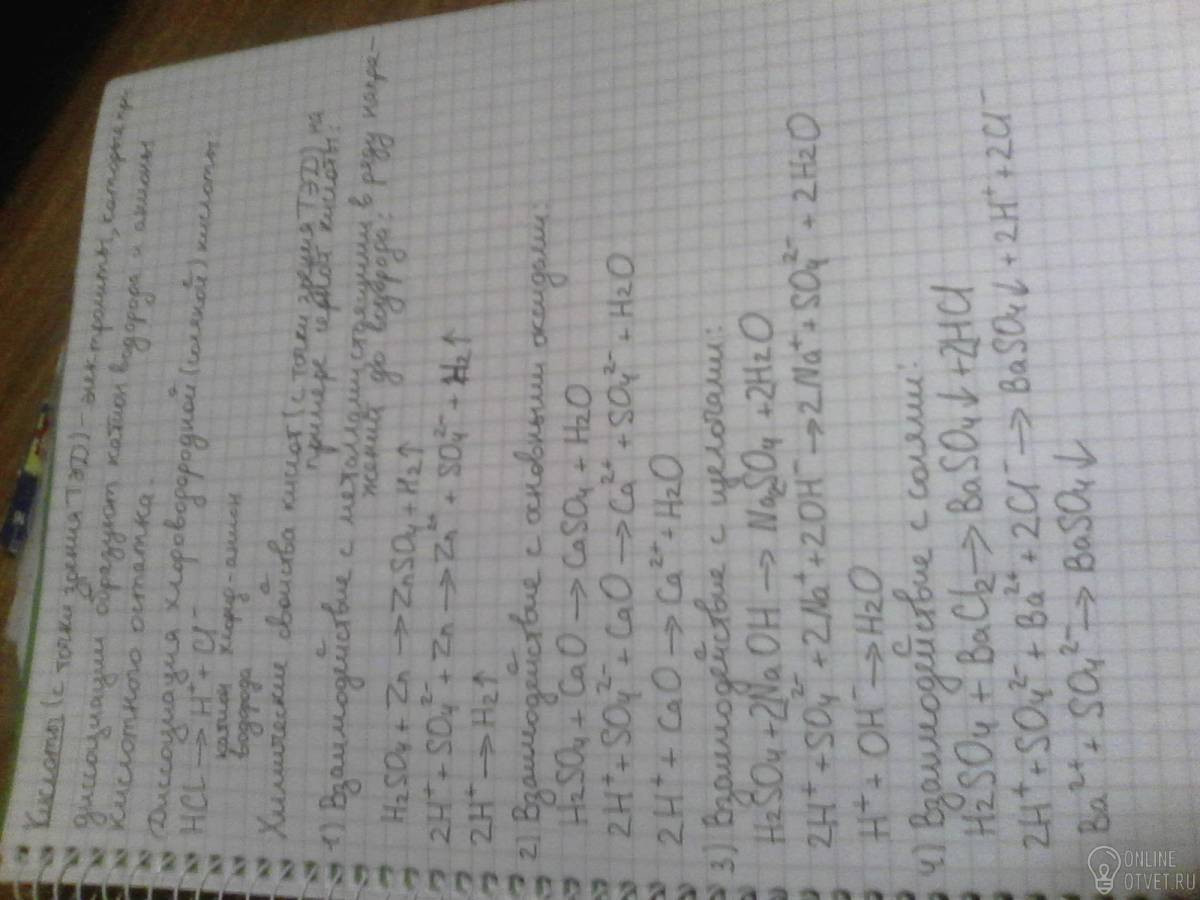 Кислоты (с точки зрения ТЭД) - электролиты, которые при
диссоциации образуют катион водорода и анионы
кислотного остатка.
Диссоциация хлороводородной (соляной) кислоты:
HCl → H⁺ + Cl⁻
катион хлорид-анион
водорода
Химические свойства кислот (с точки зрения ТЭД) на
примере серной кислоты:
1) Взаимодействие с металлами, стоящими в ряду напря-
жений до водорода:
H2SO4 + Zn → ZnSO4 + H2↑
2H⁺ + SO4²⁻ + Zn → Zn²⁺ + SO4²⁻ + H2↑
2H⁺ → H2↑
2) Взаимодействие с основными оксидами:
H2SO4 + CaO → CaSO4 + H2O
2H⁺ + SO4²⁻ + CaO → Ca²⁺ + SO4²⁻ + H2O
2H⁺ + CaO → Ca²⁺ + H2O
3) Взаимодействие с щелочами:
H2SO4 + 2NaOH → Na2SO4 + 2H2O
2H⁺ + SO4²⁻ + 2Na⁺ + 2OH⁻ → 2Na⁺ + SO4²⁻ + 2H2O
H⁺ + OH⁻ → H2O
4) Взаимодействие с солями:
H2SO4 + BaCl2 → BaSO4↓ + 2HCl
2H⁺ + SO4²⁻ + Ba²⁺ + 2Cl⁻ → BaSO4↓ + 2H⁺ + 2Cl⁻
Ba²⁺ + SO4²⁻ → BaSO4↓
ONLINE
OTVET.RU